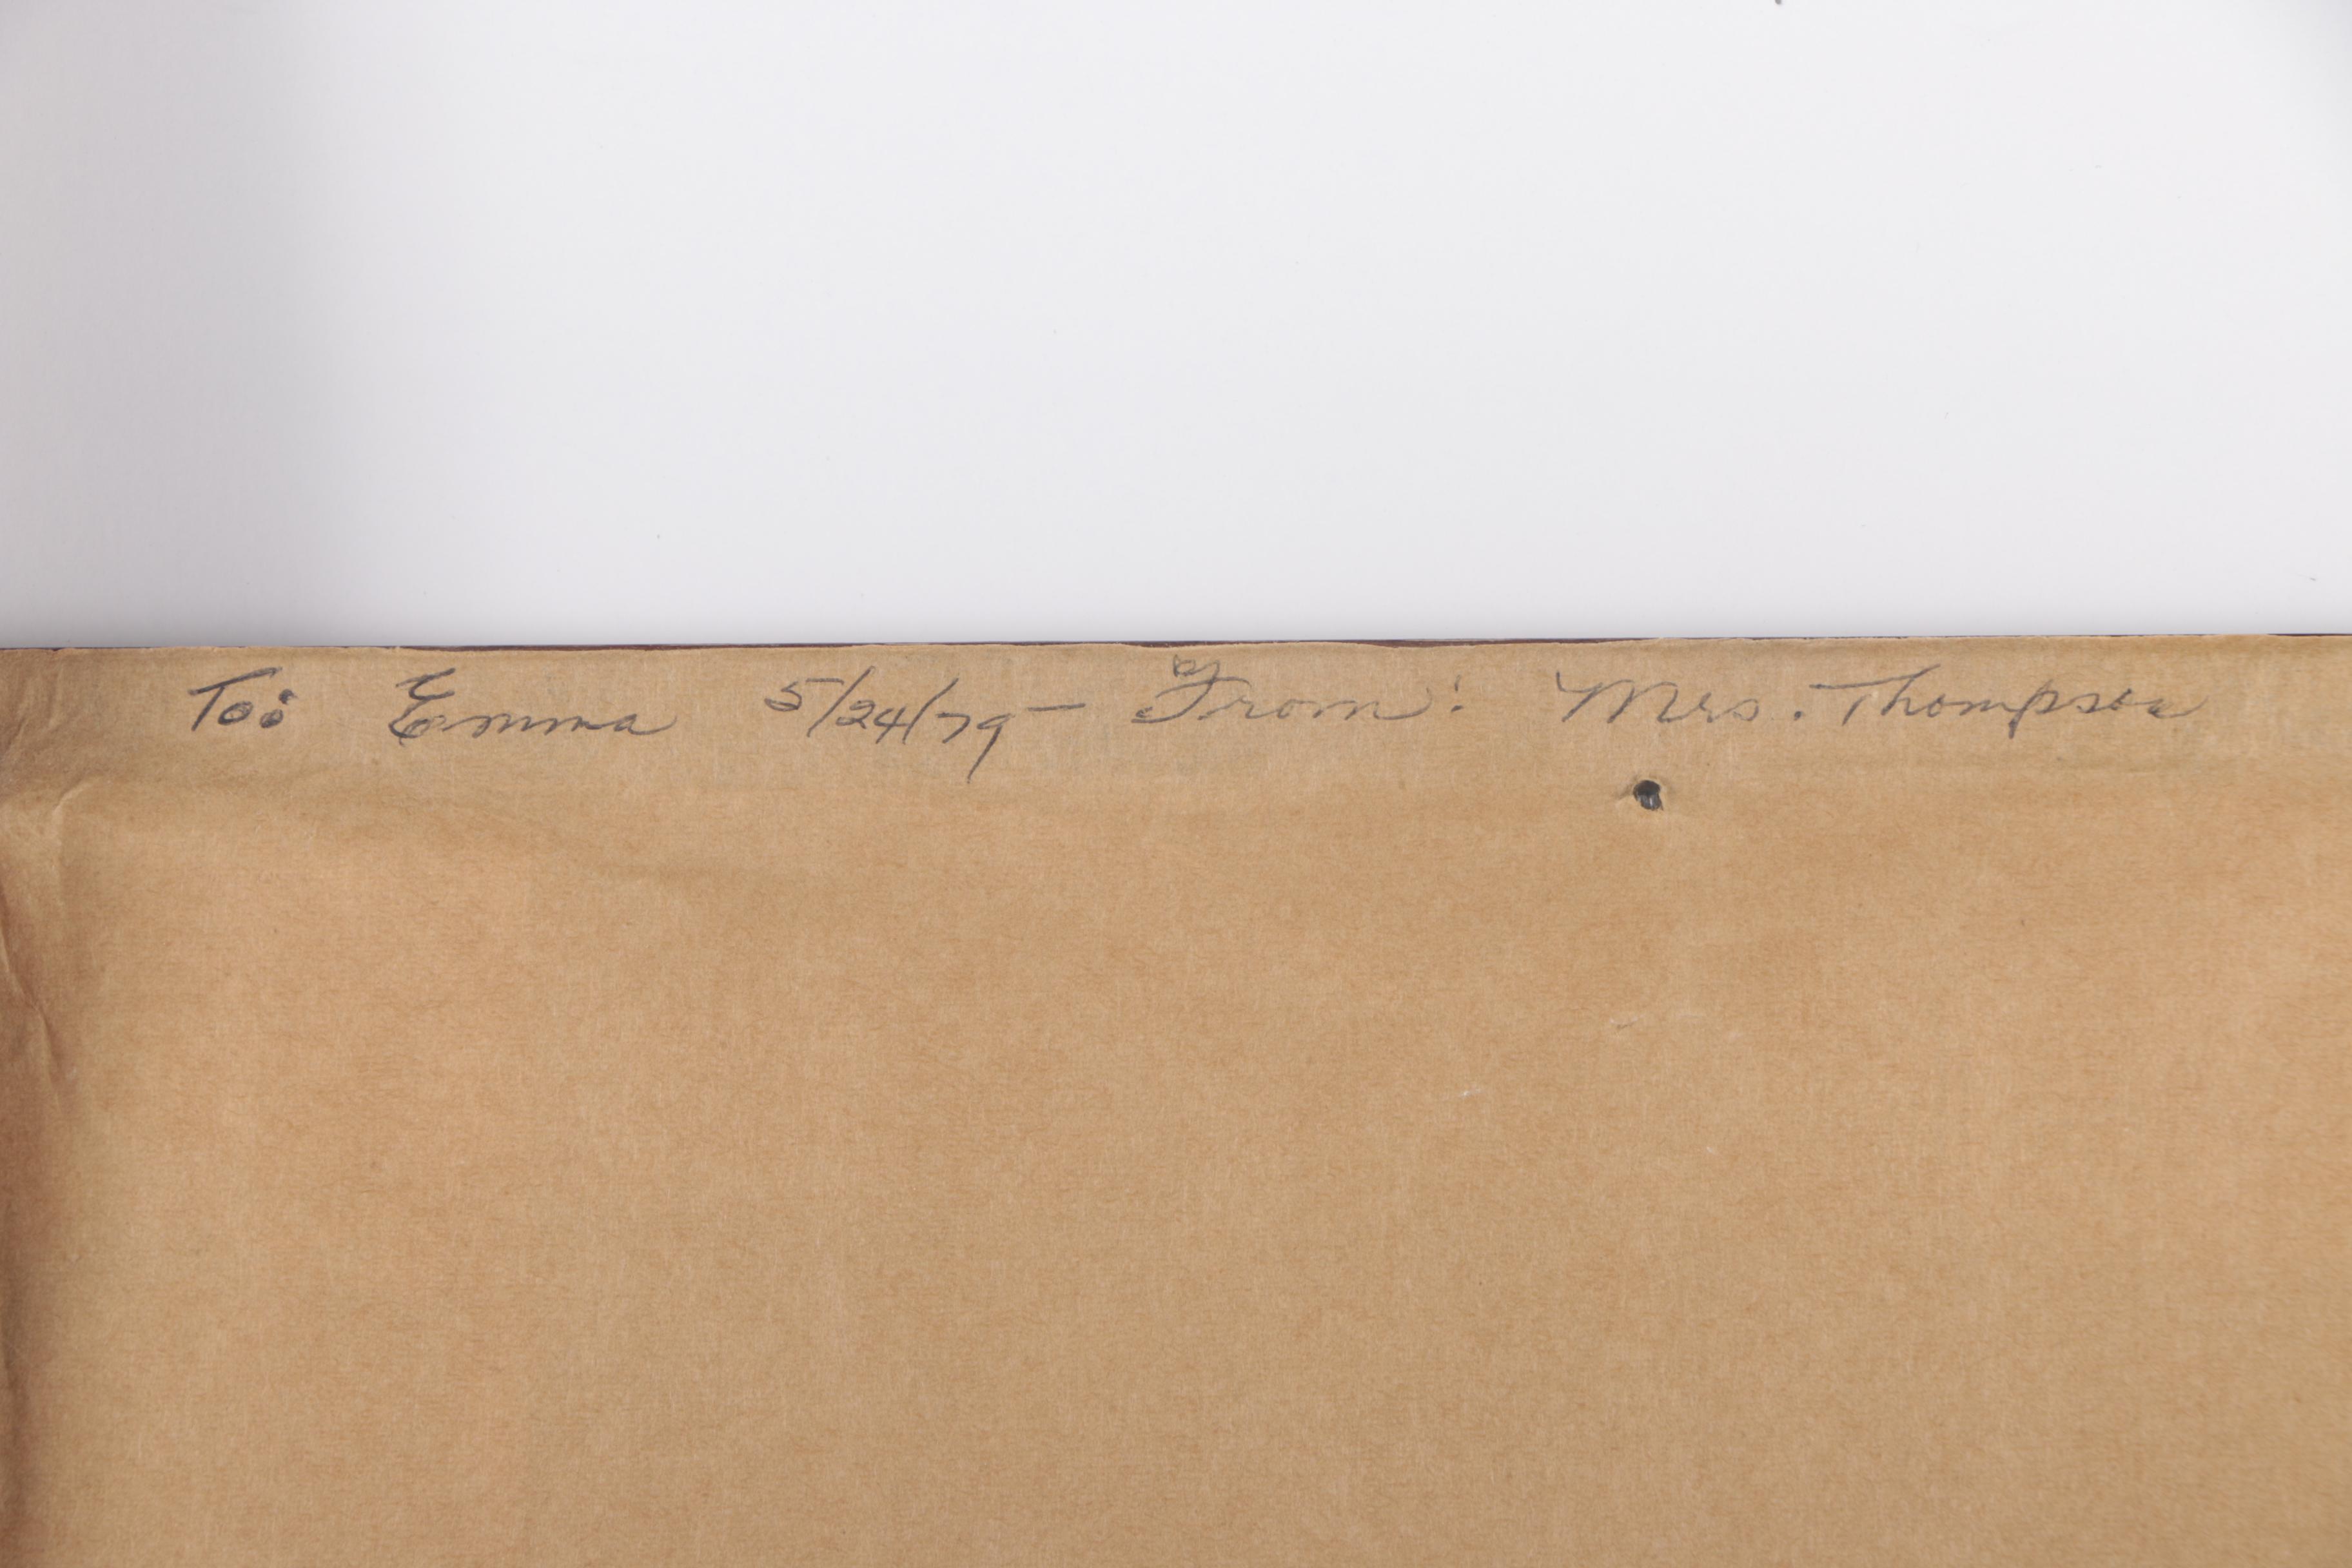 To: Emma 5/24/79 - From: Mrs. Thompson